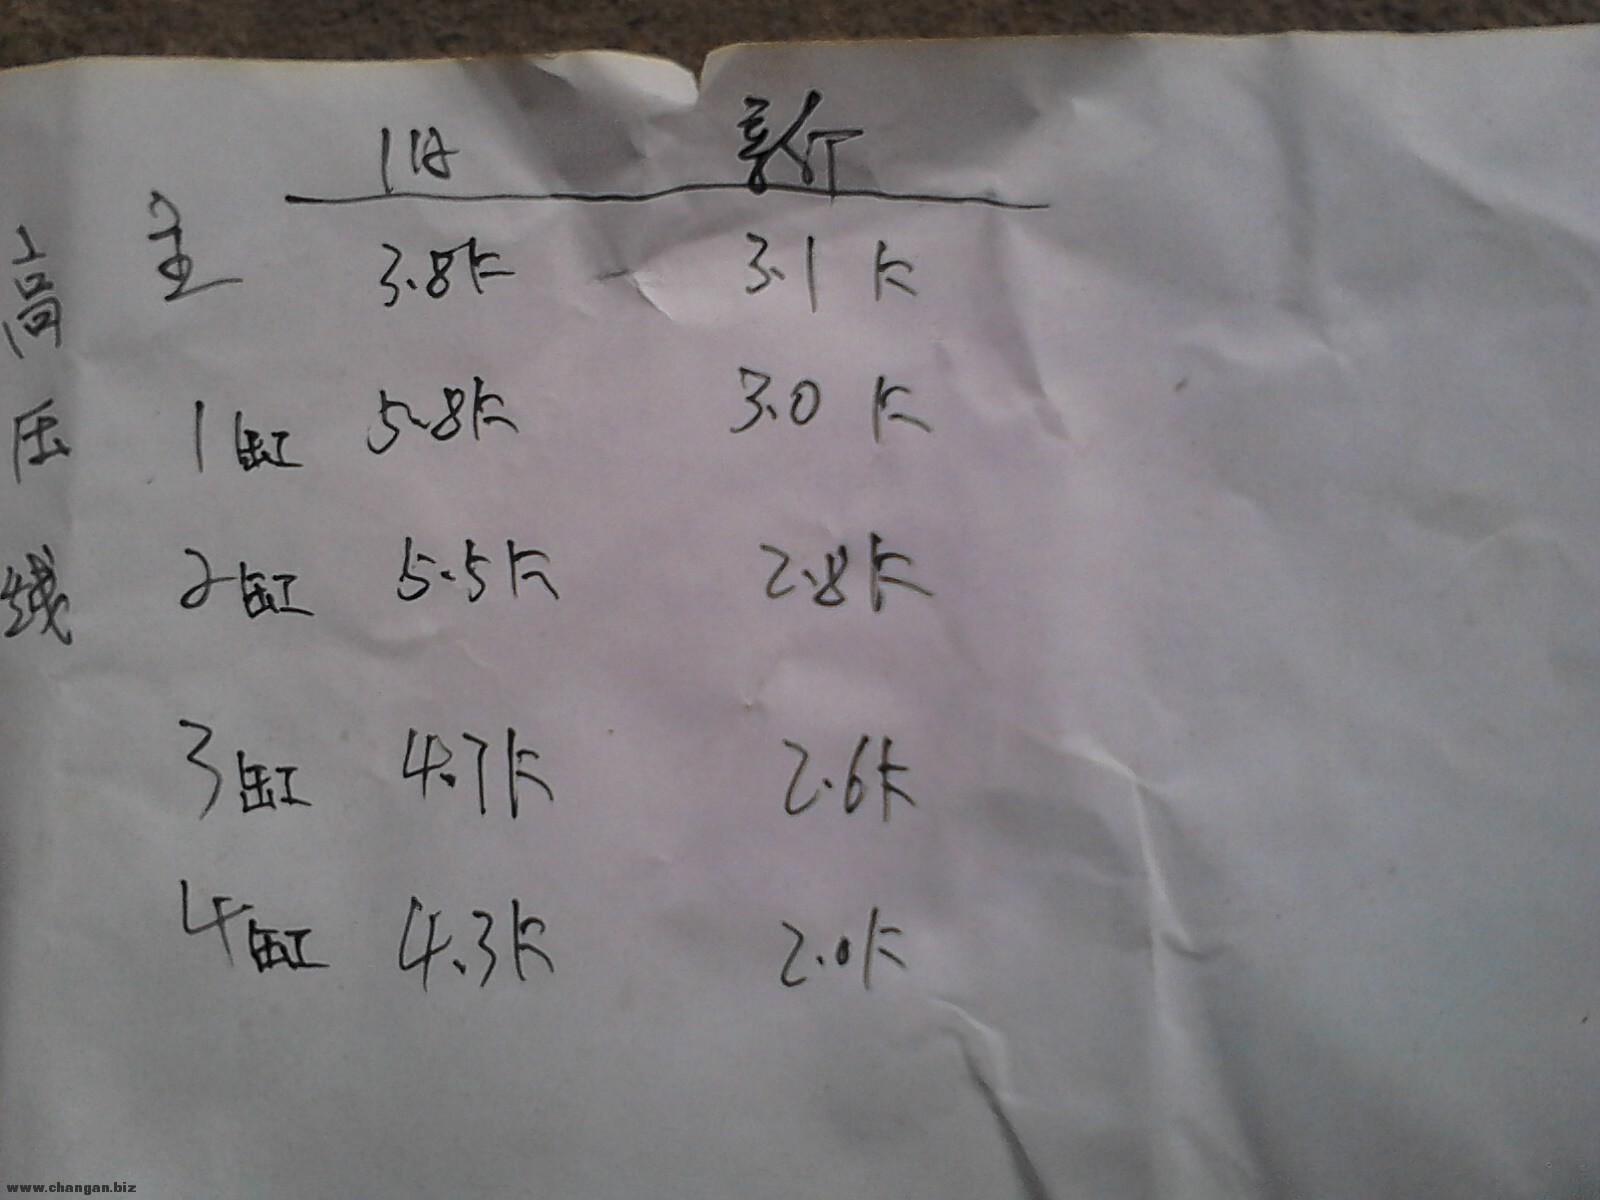 旧 新
高压线
主 3.8k 3.1 k
1缸 5.8k 3.0 k
2缸 5.5k 2.8k
3缸 4.7k 2.6k
4缸 4.3k 2.0k
www.changan.biz